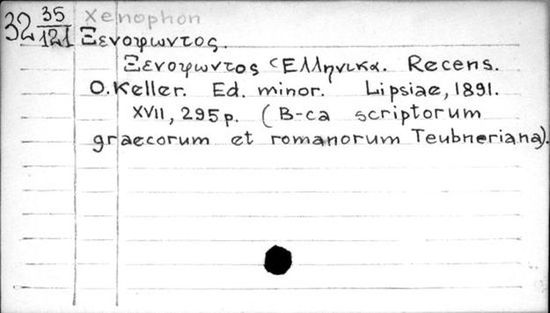 32 35/121 Xenophon
Ξενοφωντος.
Ξενοφωντος Ἑλληνικα. Recens.
O. Keller. Ed. minor. Lipsiae, 1891.
XVII, 295 p. (B-ca scriptorum
graecorum et romanorum Teubneriana).